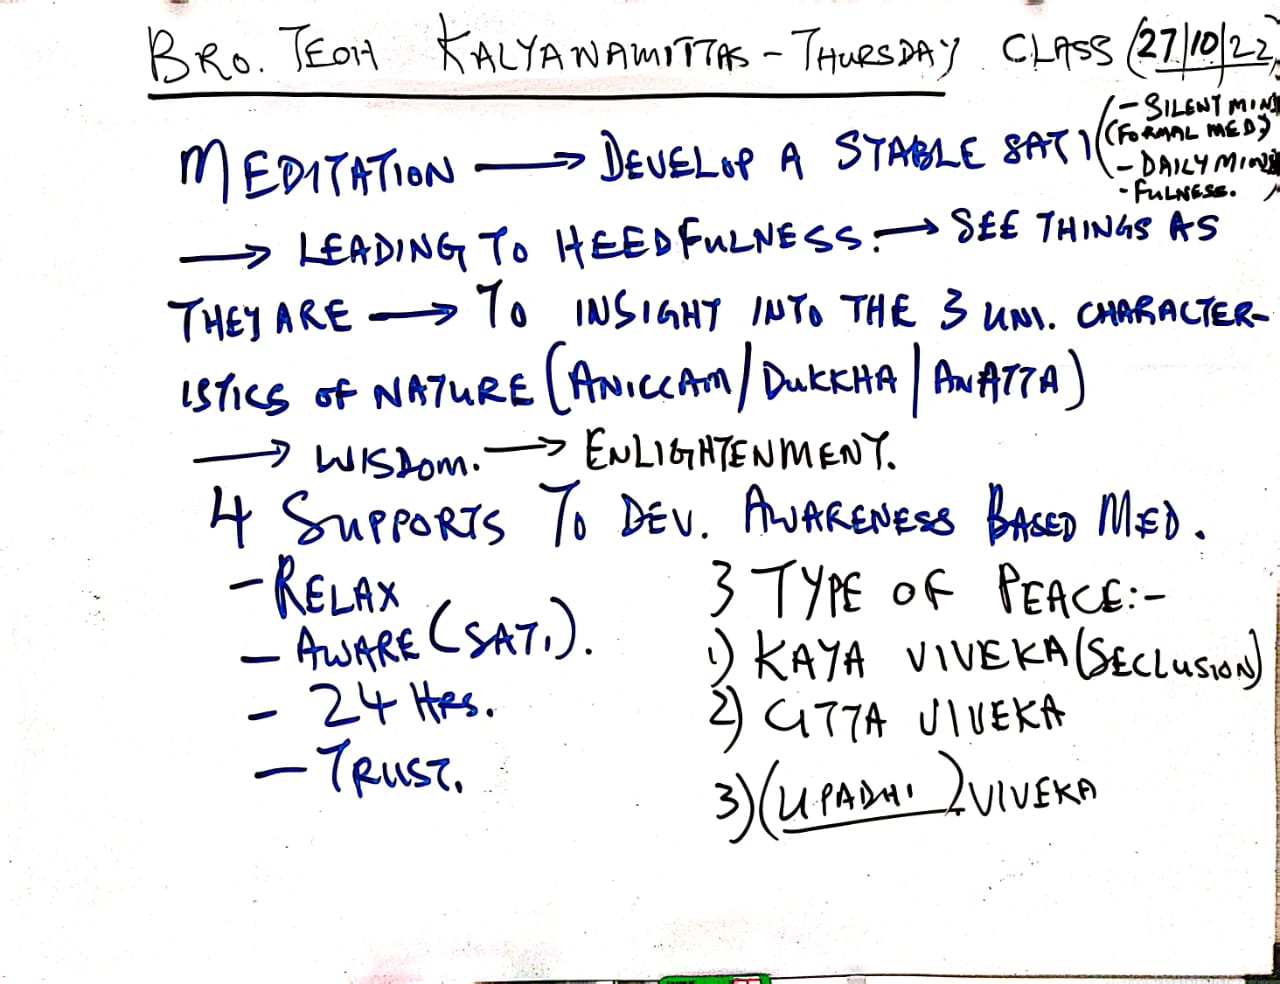 BRO. TEOH KALYANAMITTAS - THURSDAY CLASS (27/10/22)
MEDITATION → DEVELOP A STABLE SATI
(- SILENT MIND
(FORMAL MED)
- DAILY MIND
- FULNESS.
→ LEADING TO HEEDFULNESS. → SEE THINGS AS
THEY ARE → TO INSIGHT INTO THE 3 UNI. CHARACTER-
ISTICS OF NATURE (ANICCAM/DUKKHA/ANATTA)
→ WISDOM. → ENLIGHTENMENT.
4 SUPPORTS TO DEV. AWARENESS BASED MED.
- RELAX
- AWARE (SATI).
- 24 HRS.
- TRUST.
3 TYPE OF PEACE:-
1) KAYA VIVEKA (SECLUSION)
2) CITTA VIVEKA
3) (UPADHI) VIVEKA